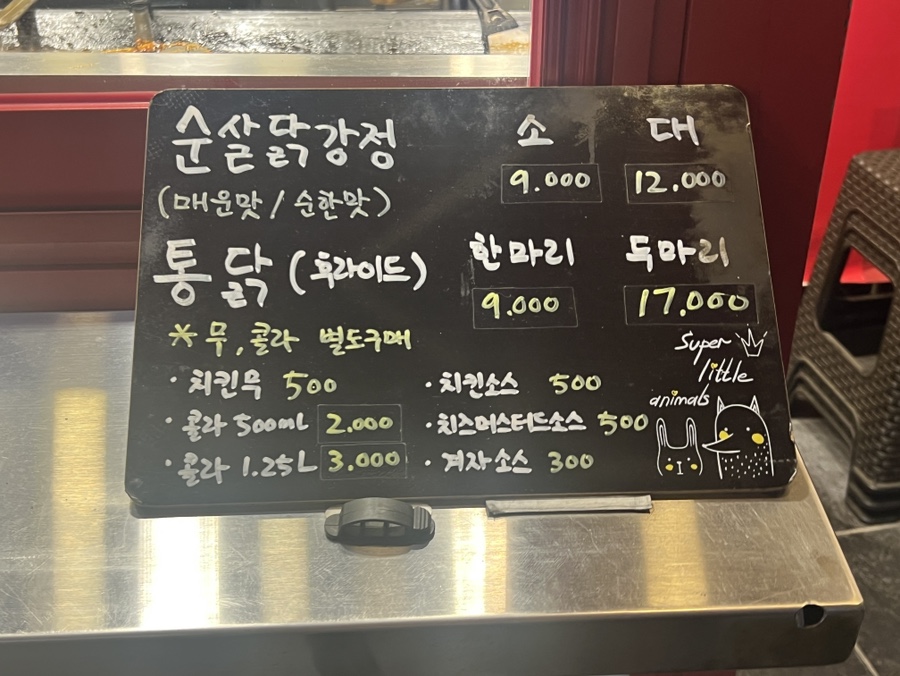 순살닭강정 소 대
9.000 12.000
(매운맛 / 순한맛)
통닭 (후라이드) 한마리 두마리
9.000 17.000
* 무, 콜라 별도구매
· 치킨무 500 · 치킨소스 500
· 콜라 500mL 2.000 · 치즈머스터드소스 500
· 콜라 1.25L 3.000 · 겨자소스 300
Super
little
animals